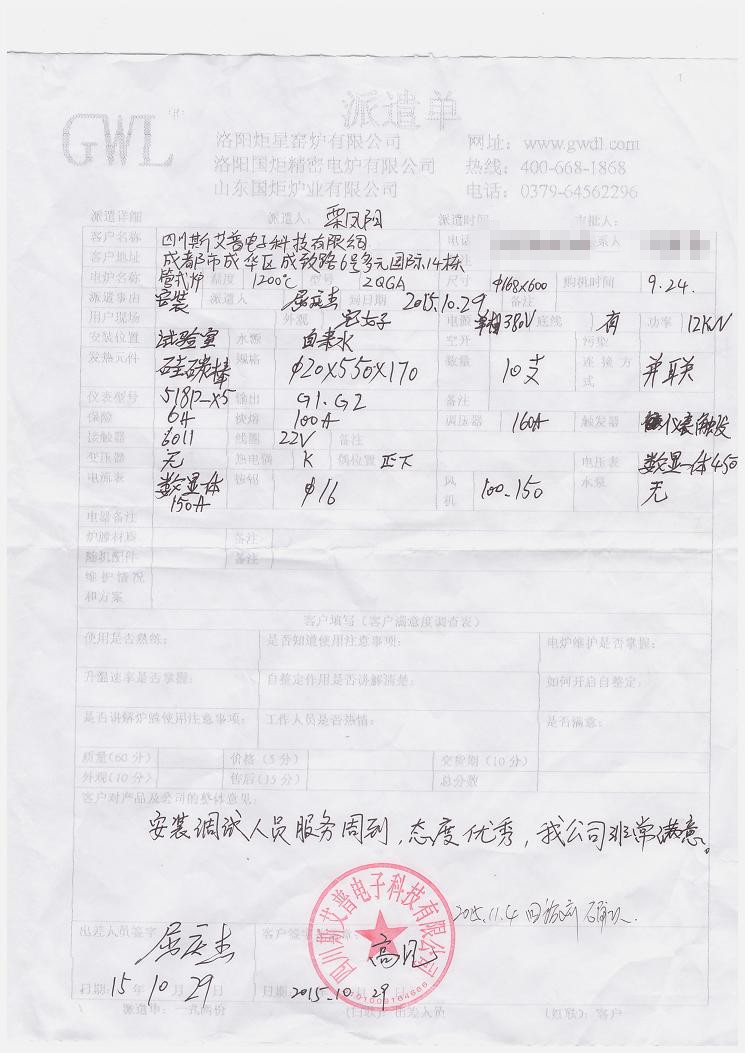 1
派遣单
GWL
洛阳炬星窑炉有限公司 网址：www.gwdl.com
洛阳国炬精密电炉有限公司 热线：400-668-1868
山东国炬炉业有限公司 电话：0379-64562296
派遣详细 派遣人：栗凤阳 派遣时间 审批人：
客户名称 四川斯艾普电子科技有限公司 电话 联系人
客户地址 成都市成华区成致路6号多元国际14栋
电炉名称 管式炉 温度 1200℃ 型号 2QGA 尺寸 φ168x600 购机时间 9.24.
派遣事由 安装 派遣人 屈庆杰 回日期 2015.10.29 备注
用户现场 外观 电源 单相380V 底线 有 功率 12KW
安装位置 试验室 水源 自来水 空开 污染
发热元件 硅碳棒 规格 φ20x550x170 数量 10支 连接方式 并联
仪表型号 518P-x5 输出 G1.G2 备注
保险 6A 快熔 100A 调压器 160A 触发器 仪表触发
接触器 6011 线圈 22V 备注
变压器 无 热电偶 K 偶位置 正下 电压表 数显一体450
电流表 数显一体150A φ16 风机 100-150 水泵 无
电器备注
炉膛材质 备注
随机配件 备注
维护情况和方案
客户填写（客户满意度调查表）
使用是否熟练： 是否知道使用注意事项： 电炉维护是否掌握：
升温速率是否掌握： 自整定作用是否讲解清楚： 如何开启自整定：
是否讲解炉膛使用注意事项： 工作人员是否热情： 是否满意：
质量(60分) 价格（5分） 交货期（10分）
外观(10分) 售后(15分) 总分数
客户对产品及公司的整体意见：
安装调试人员服务周到，态度优秀，我公司非常满意。
四川斯艾普电子科技有限公司
2015.11.4
出差人员签字 屈庆杰 客户签字 高见
日期：15年10月29日 日期：2015.10.29
派遣单：一式两份 (白联)：出差人员 (红联)：客户